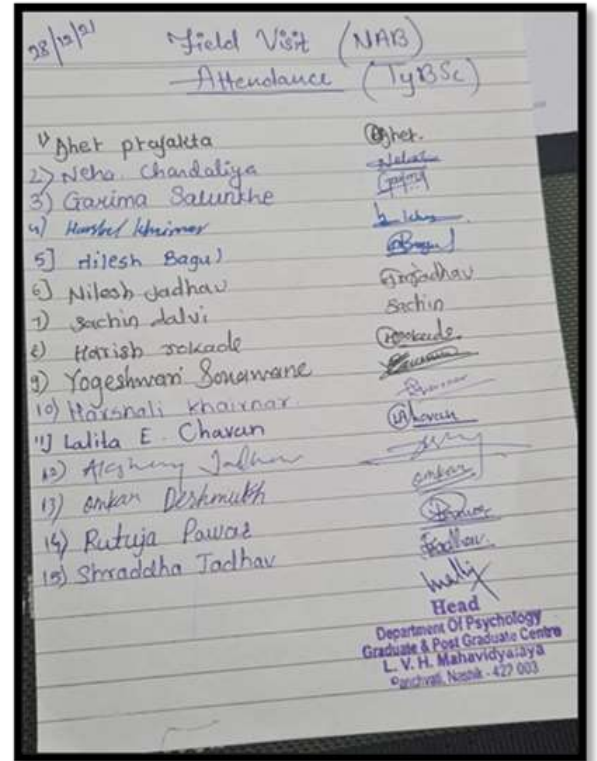 28/12/21 Field Visit (NAB)
Attendance (TyBSc)
1) Aher prajakta Aher.
2) Neha Chandaliya Neha
3) Garima Salunkhe
4) Harshal khairnar
5] Hilesh Bagul Bagul
6] Nilesh Jadhav Jadhav
7) Sachin dalvi Sachin
8) Harish rokade Rokade
9) Yogeshwari Sonawane
10) Harshali khairnar
11] Lalita E. Chavan Chavan
12) Jadhav
13) omkar Deshmukh omkar
14) Rutuja Pawar Pawar
15) Shraddha Jadhav Jadhav
Head
Department Of Psychology
Graduate & Post Graduate Centre
L. V. H. Mahavidyalaya
Panchvati, Nashik - 422 003